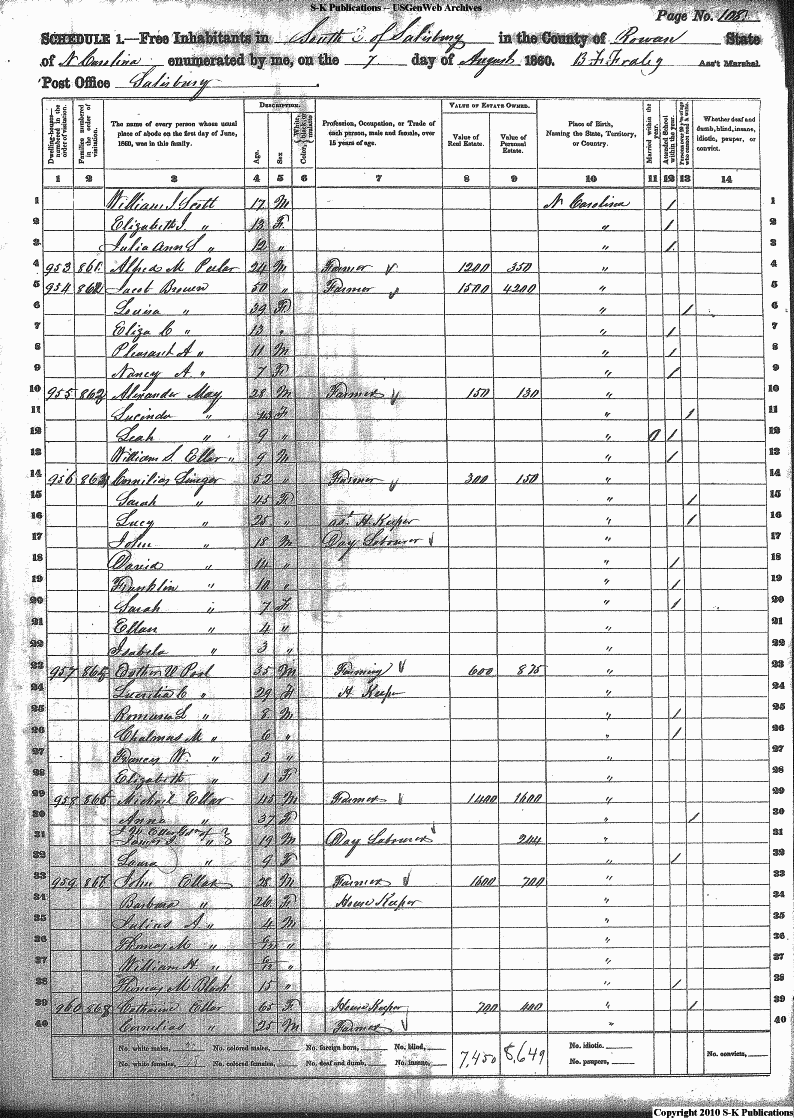 S-K Publications -- USGenWeb Archives
Page No. 108
SCHEDULE 1.—Free Inhabitants in South of Salisbury in the County of Rowan State
of N Carolina enumerated by me, on the 7 day of August 1860. Ass't Marshal.
Post Office Salisbury
Dwelling-houses—numbered in the order of visitation. Families numbered in the order of visitation. The name of every person whose usual place of abode on the first day of June, 1860, was in this family. DESCRIPTION. Age. Sex. Color, White, black, or mulatto. Profession, Occupation, or Trade of each person, male and female, over 15 years of age. VALUE OF ESTATE OWNED. Value of Real Estate. Value of Personal Estate. Place of Birth, Naming the State, Territory, or Country. Married within the year. Attended School within the year. Persons over 20 y'rs of age who cannot read & write. Whether deaf and dumb, blind, insane, idiotic, pauper, or convict.
1 2 3 4 5 6 7 8 9 10 11 12 13 14
1 William J Scott 17 M N Carolina / 1
2 Elizabeth J. " 13 F. " / 2
3 Julia Ann S " 12 " " / 3
4 953 861 Alfred M Peeler 24 M Farmer 1200 350 " 4
5 954 862 Jacob Brown 50 " Farmer 1500 4200 " 5
6 Louisa " 39 F " / 6
7 Eliza C " 13 " " / 7
8 Pleasant A " 11 M " / 8
9 Nancy A. " 7 F " / 9
10 955 863 Alexander May 28 M Farmer 150 130 " 10
11 Lucinda " F " / 11
12 Leah " 9 " " / 12
13 William S. Eller " 9 M " / 13
14 956 864 52 " Farmer 300 150 " 14
15 Sarah " 45 F " / 15
16 Lucy " 25 " H Keeper " / 16
17 John " 18 M Day Labourer " 17
18 David " 14 " " / 18
19 Franklin " 10 " " / 19
20 Sarah " 7 F " / 20
21 Ellen " 4 " " 21
22 Isabela " 3 " " 22
23 957 865 35 M Farming 600 875 " 23
24 Lucretia C " 29 F H Keeper " 24
25 L " 8 M " / 25
26 Chalmas M " 6 " " / 26
27 Francis W. " 3 " " 27
28 Elizabeth " 1 F " 28
29 958 866 Michael Eller 45 M Farmer 1400 1600 " 29
30 Anna " 37 F " / 30
31 " 19 M Day Labourer 244 " 31
32 Laura " 9 F " / 32
33 959 867 John Eller 28 M Farmer 1600 700 " 33
34 Barbara " 26 F House Keeper " 34
35 Julius A " 4 M " 35
36 Thomas M " " " 36
37 William H " " " 37
38 Thomas M Black 15 " " / 38
39 960 868 Catharine Eller 65 F House Keeper 700 400 " / 39
40 Cornelius " 25 M Farmer " 40
No. white males, No. colored males, No. foreign born, No. blind, 7,450 8,649 No. idiotic, No. convicts,
No. white females, No. colored females, No. deaf and dumb, No. insane, No. paupers,
Copyright 2010 S-K Publications